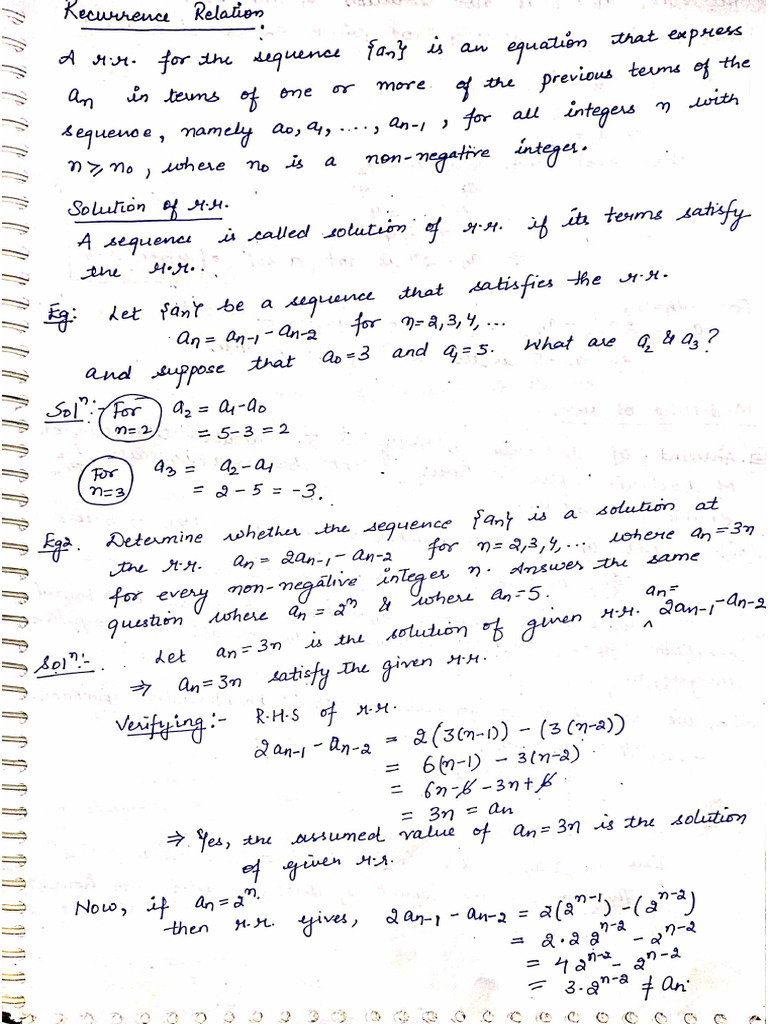 Recurrence Relation:
A r.r. for the sequence {an} is an equation that express
an in terms of one or more of the previous terms of the
sequence, namely a0, a1, ...., an-1, for all integers n with
n ≥ n0, where n0 is a non-negative integer.
Solution of r.r.
A sequence is called solution of r.r. if its terms satisfy
the r.r..
Eg: Let {an} be a sequence that satisfies the r.r.
an = an-1 - an-2 for n=2,3,4,...
and suppose that a0=3 and a1=5. What are a2 & a3?
Solⁿ:- For n=2 a2 = a1-a0
= 5-3 = 2
For n=3 a3 = a2-a1
= 2-5 = -3.
Eg2. Determine whether the sequence {an} is a solution at
the r.r. an = 2an-1 - an-2 for n=2,3,4,... where an=3n
for every non-negative integer n. Answer the same
question where an=2ⁿ & where an=5.
Solⁿ:- Let an=3n is the solution of given r.r. ^ an= 2an-1-an-2
⇒ an=3n satisfy the given r.r.
Verifying:- R.H.S of r.r.
2an-1 - an-2 = 2(3(n-1)) - (3(n-2))
= 6(n-1) - 3(n-2)
= 6n-6-3n+6
= 3n = an
⇒ Yes, the assumed value of an=3n is the solution
of given r.r.
Now, if an=2ⁿ.
then r.r. gives, 2an-1 - an-2 = 2(2ⁿ⁻¹) - (2ⁿ⁻²)
= 2·2 2ⁿ⁻² - 2ⁿ⁻²
= 4 2ⁿ⁻² - 2ⁿ⁻²
= 3·2ⁿ⁻² ≠ an.